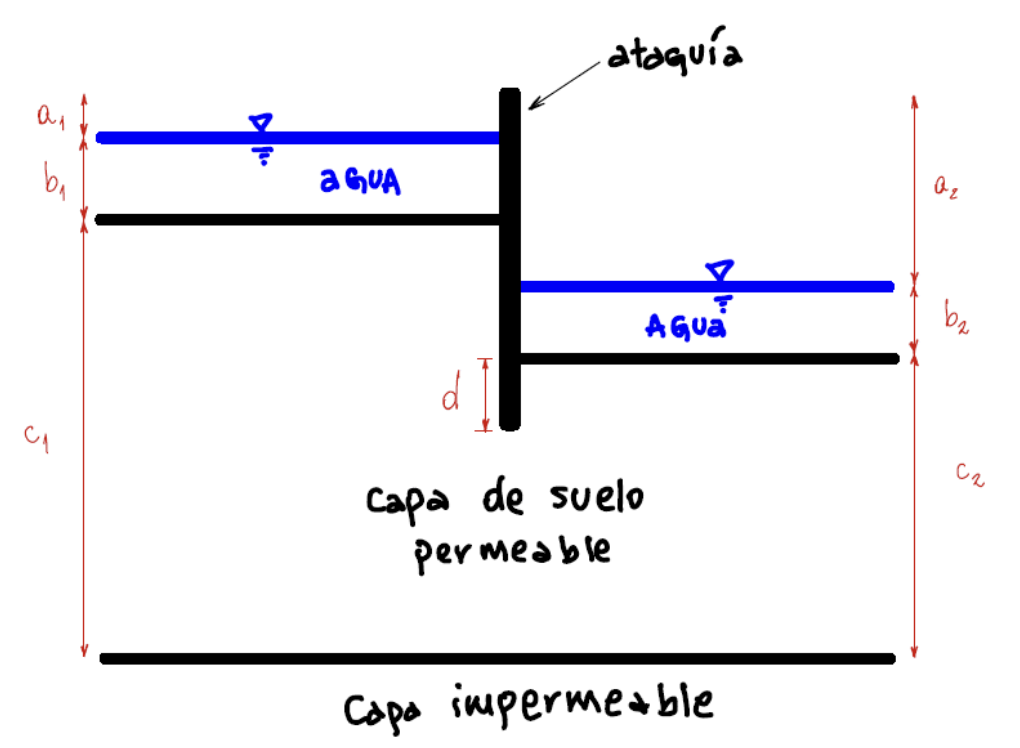 ataguía
a₁
b₁
aGUA
a₂
AGUa
b₂
d
c₁
c₂
capa de suelo
permeable
capa impermeable